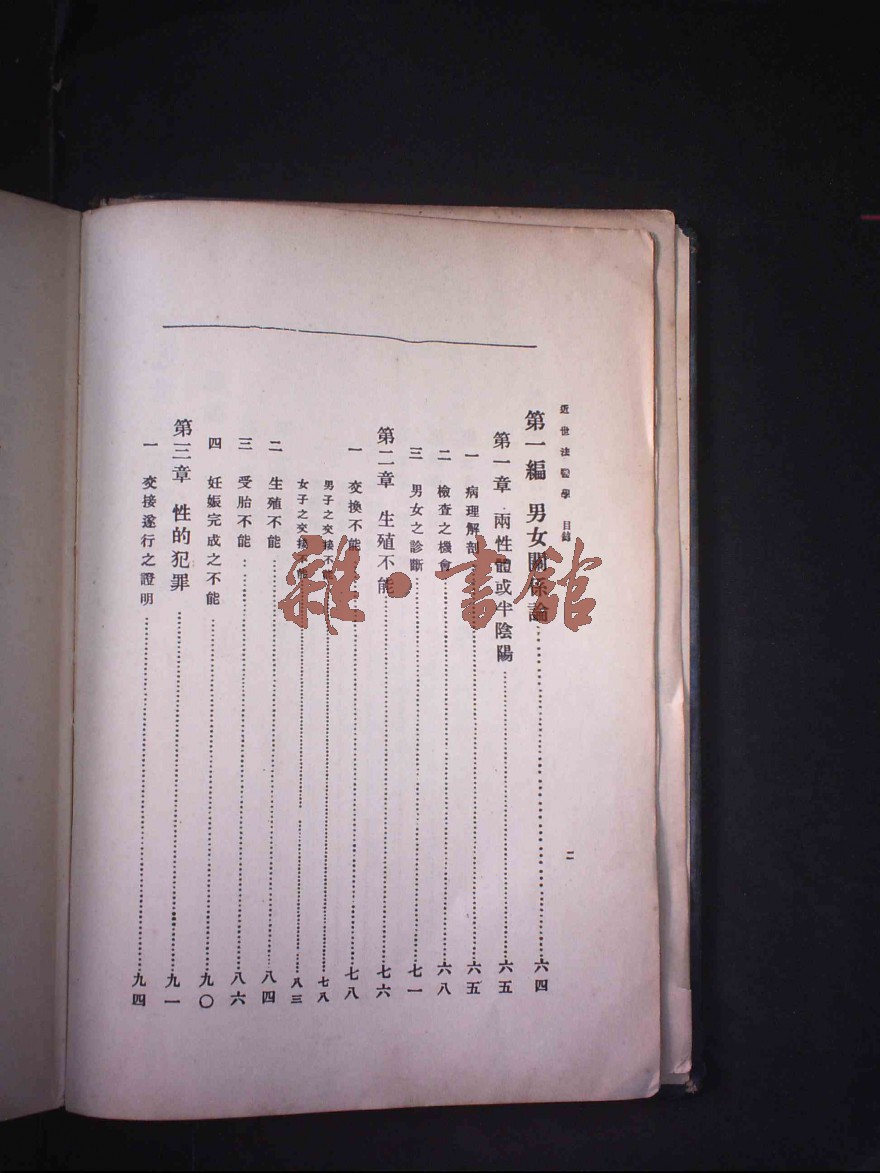 近世法醫學 目錄
二
第一編 男女關係論……六四
第一章 兩性體或半陰陽……六五
一 病理解剖……六五
二 檢查之機會……六八
三 男女之診斷……七一
第二章 生殖不能……七六
一 交換不能……七八
男子之交接不能……七八
女子之交接不能……八三
二 生殖不能……八四
三 受胎不能……八六
四 妊娠完成之不能……九〇
第三章 性的犯罪……九一
一 交接遂行之證明……九四
雜·書館